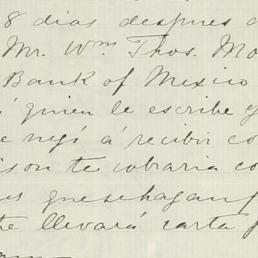 8 dias despues d
Mr. Wm. Thos. Mo
Bank of Mexico
á quien le escribe y
e negó á recibir co
ison te cobraria co
us que se hagan
te llevará carta p